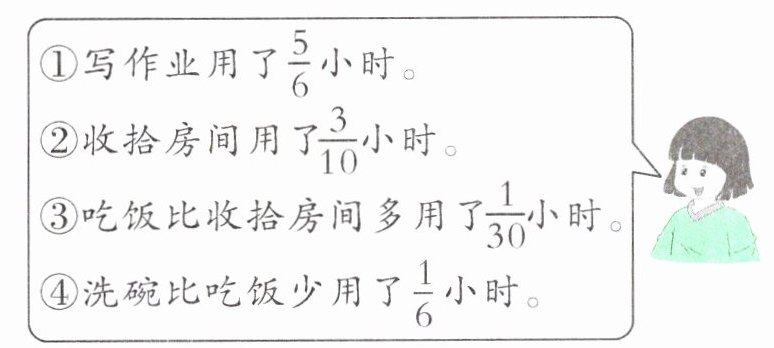 ①写作业用了5/6小时。
②收拾房间用了3/10小时。
③吃饭比收拾房间多用了1/30小时。
④洗碗比吃饭少用了1/6小时。